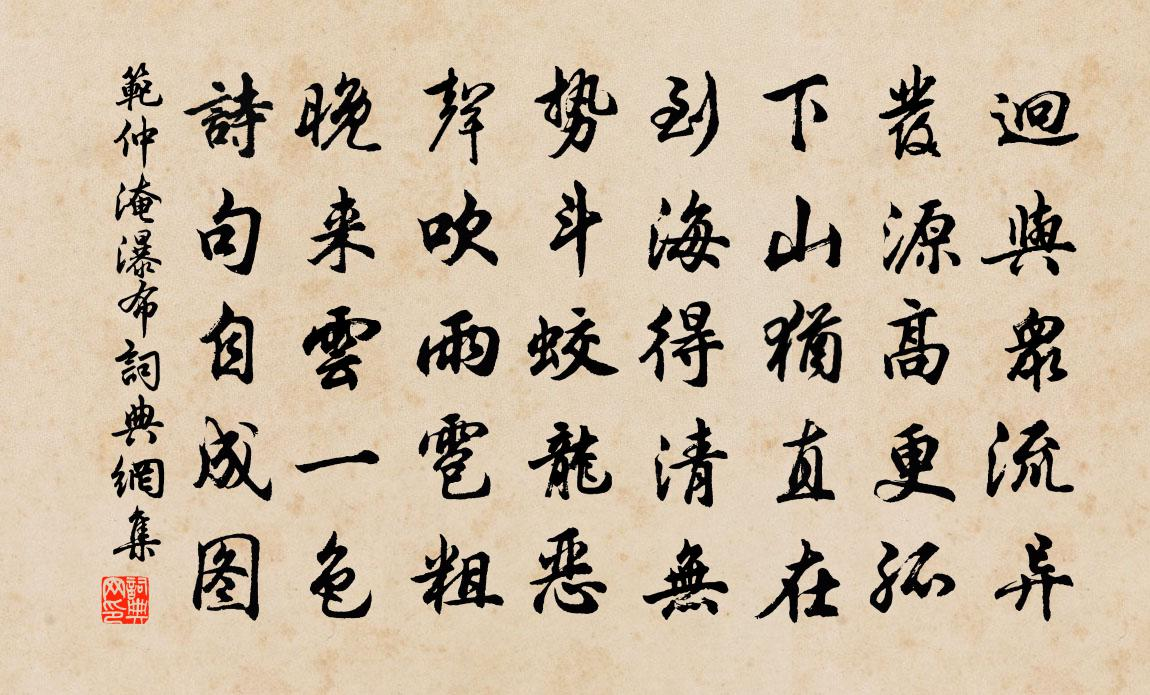 迥與眾流异
發源高更孤
下山猶直在
到海得清無
势斗蛟龍惡
聲吹雨雹粗
晚来雲一色
詩句自成图
範仲淹瀑布詞典網集
詞典
网印